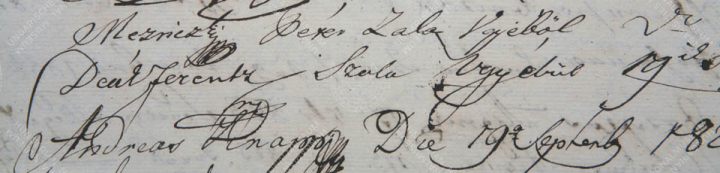 Mezriczki Peter Zala Vgyéböl
Deák Ferentz Szala Vgyébül 19
Andreas Knapp Die 19ª Septemb 182